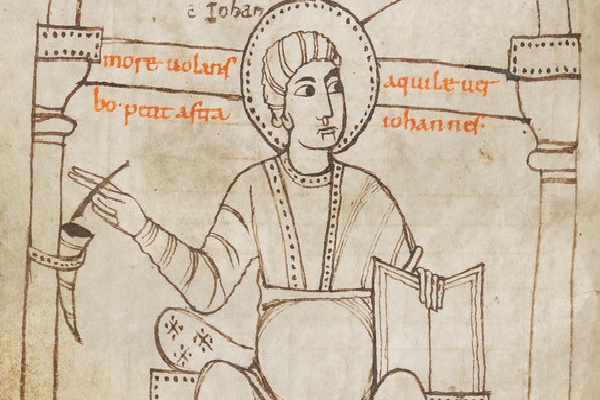 Iohan
more uolans aquile uer
bo·petit astra iohannes·